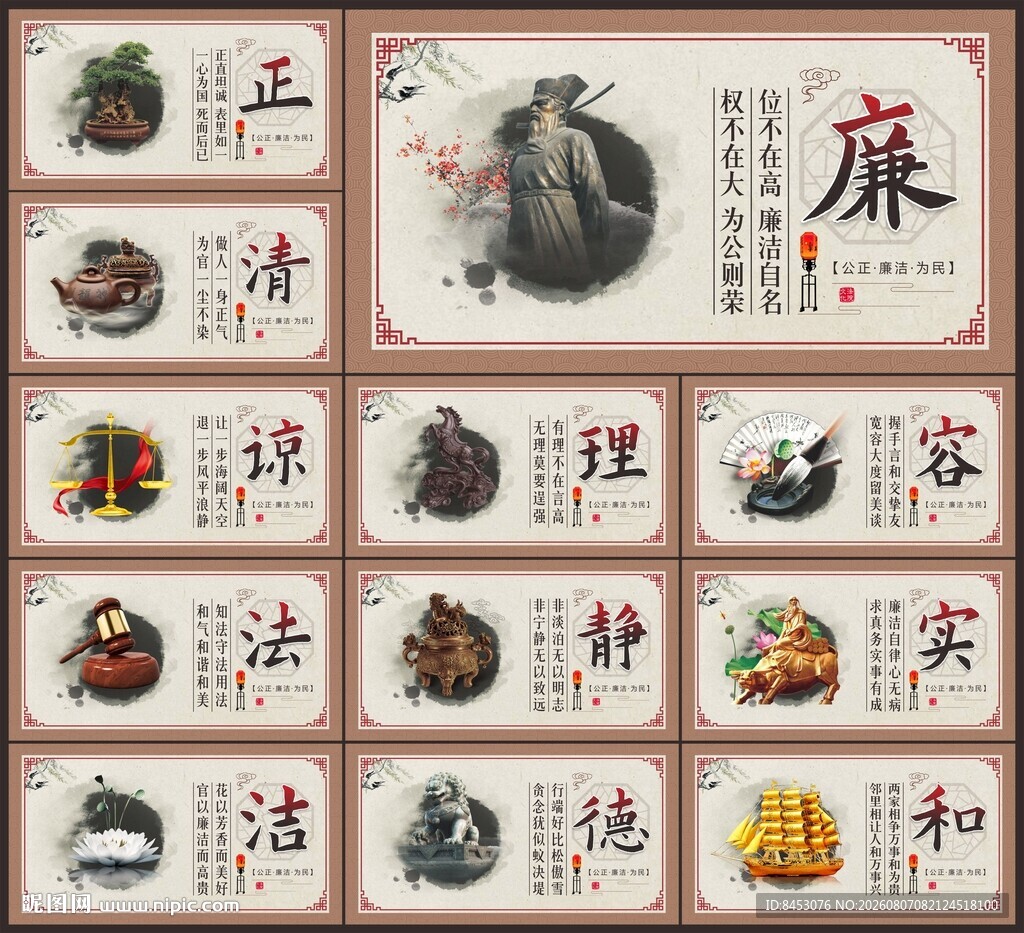 正
正直坦诚 表里如一
一心为国 死而后已
【公正·廉洁·为民】
廉
位不在高 廉洁自名
权不在大 为公则荣
【公正·廉洁·为民】
清
做人一身正气
为官一尘不染
【公正·廉洁·为民】
谅
让一步海阔天空
退一步风平浪静
【公正·廉洁·为民】
理
有理不在言高
无理莫要逞强
【公正·廉洁·为民】
容
握手言和交挚友
宽容大度留美谈
【公正·廉洁·为民】
法
知法守法用法
和气和谐和美
【公正·廉洁·为民】
静
非淡泊无以明志
非宁静无以致远
【公正·廉洁·为民】
实
廉洁自律心无病
求真务实事有成
【公正·廉洁·为民】
洁
花以芳香而美好
官以廉洁而高贵
【公正·廉洁·为民】
德
行端好比松傲雪
贪念犹似蚁决堤
【公正·廉洁·为民】
和
两家相争万事和为贵
邻里相让人和万事兴
【公正·廉洁·为民】
昵图网 www.nipic.com
ID:8453076 NO:20260807082124518100